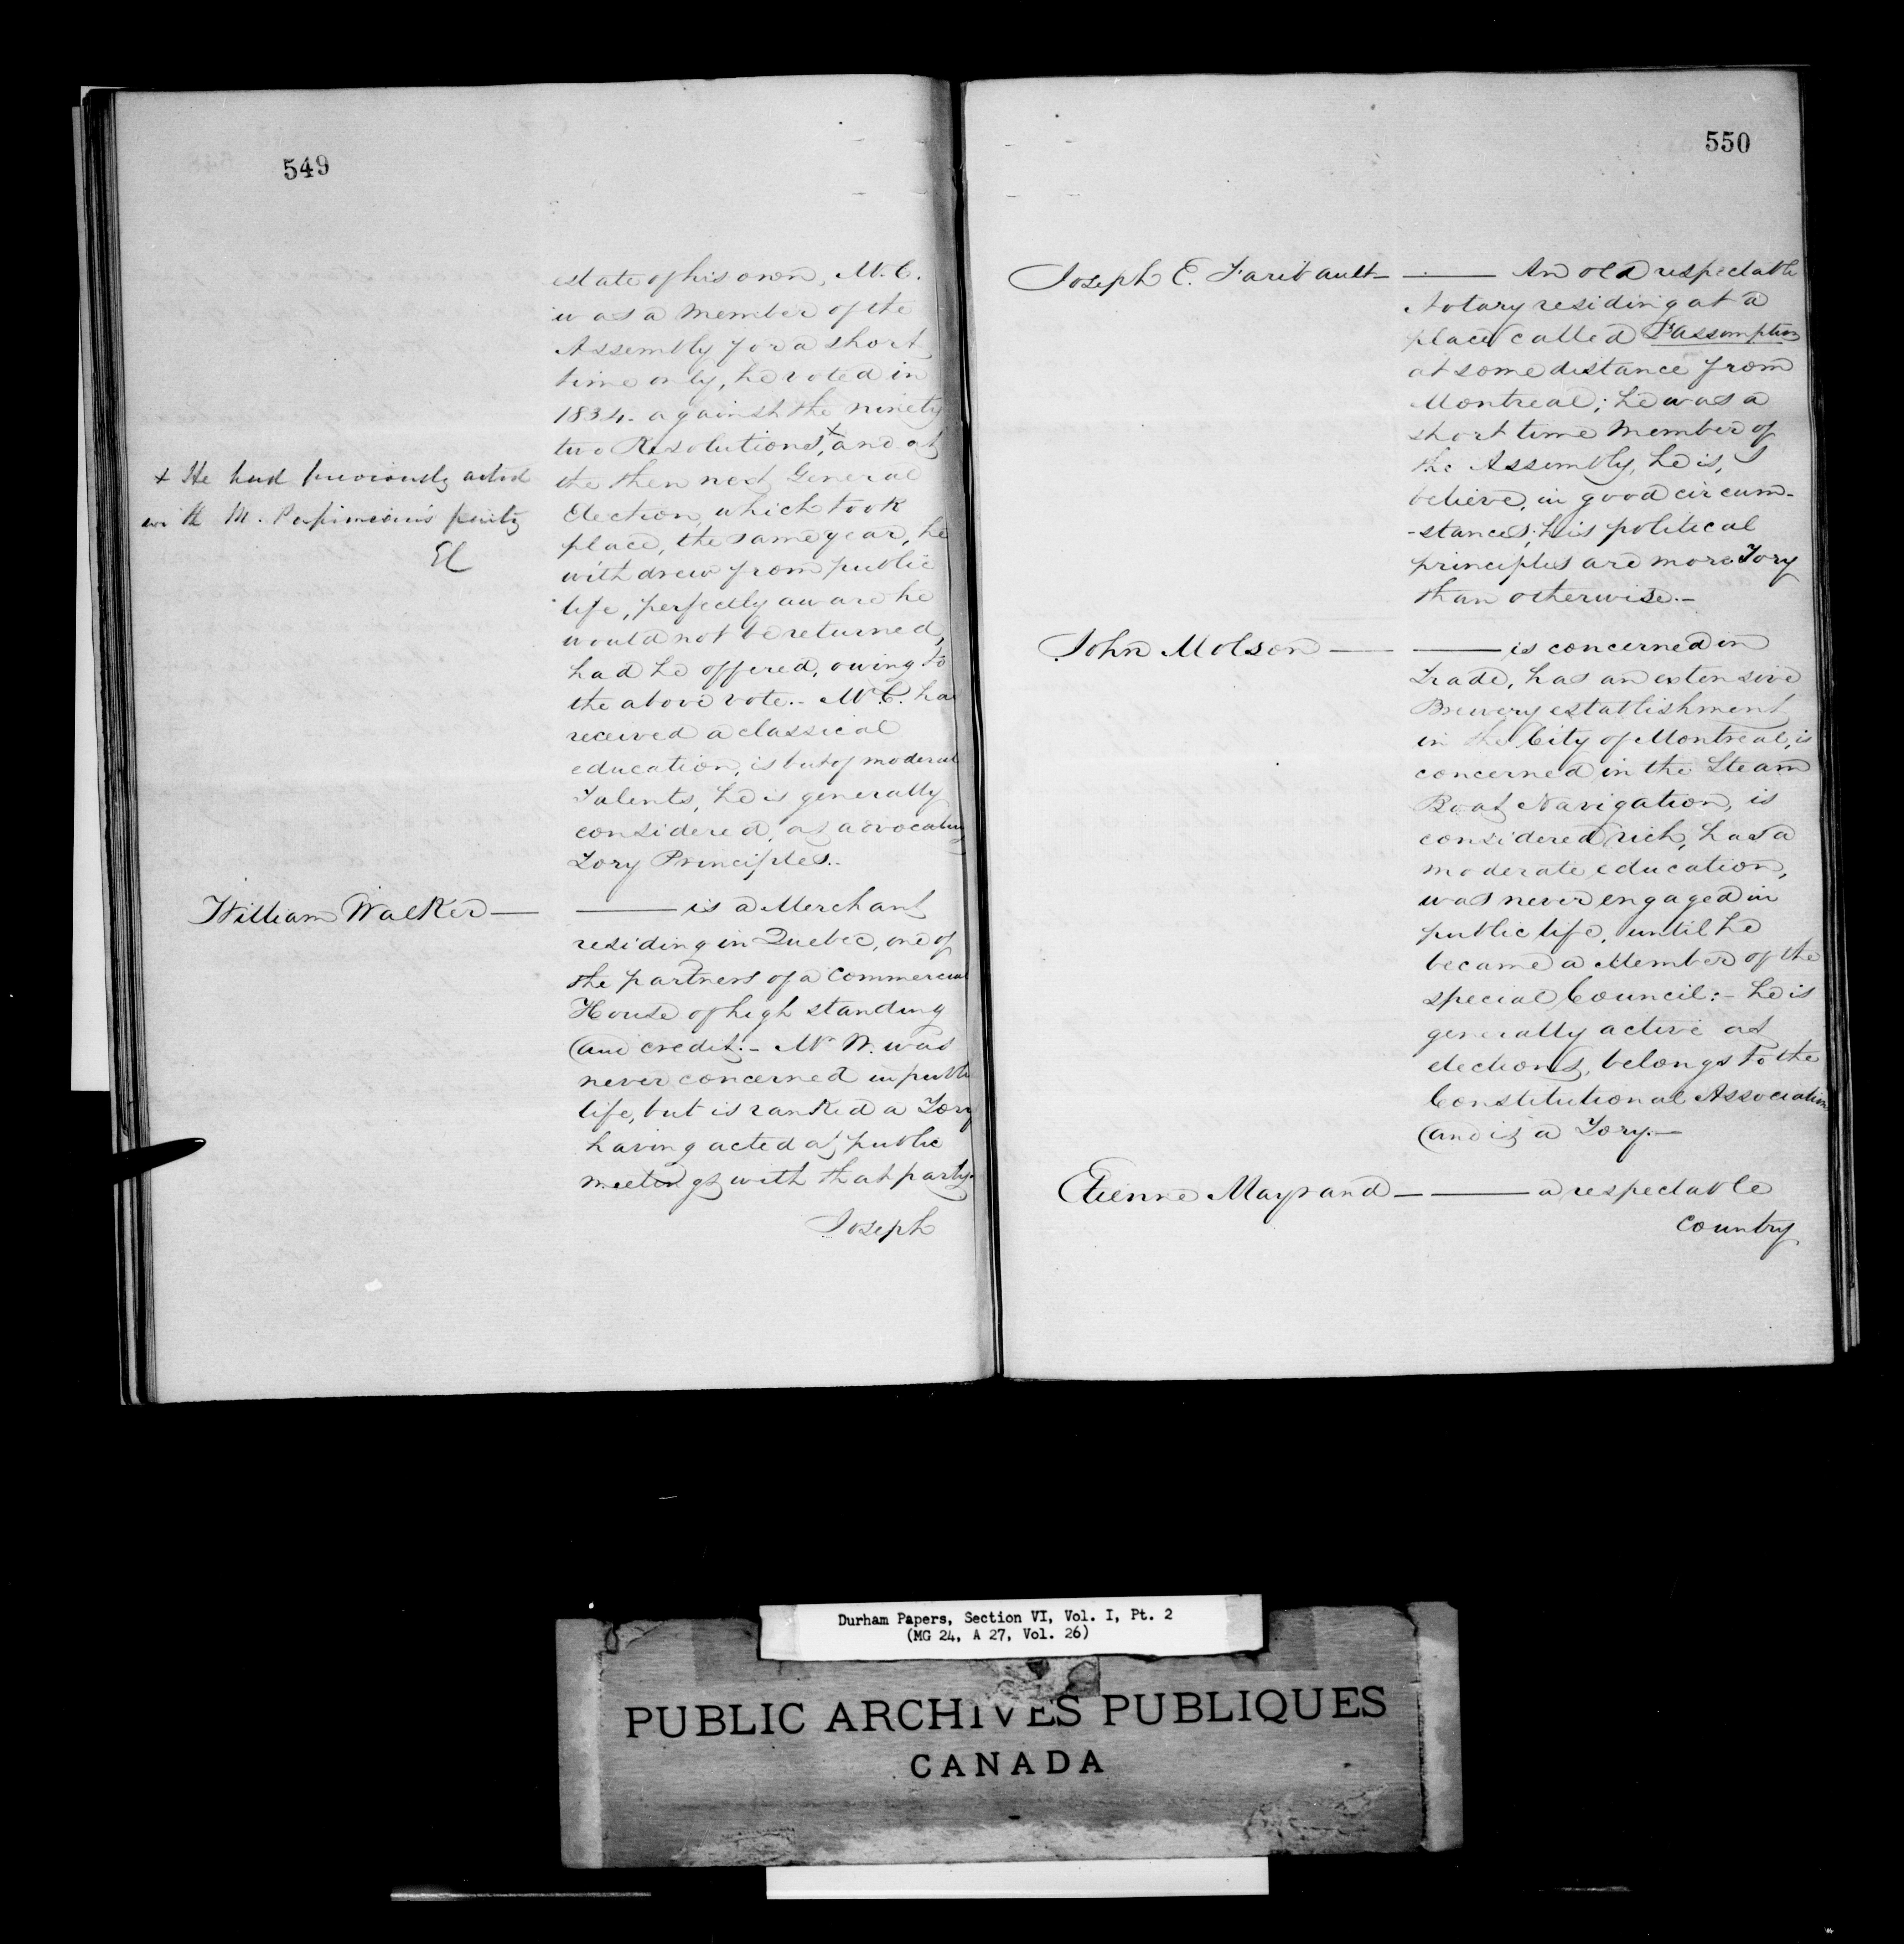 549
estate of his own, Mr. C.
was a Member of the
Assembly for a short
time only, he voted in
1834. against the ninety
two Resolutions,+ and at
the then next General
Election, which took
place, the same year, he
withdrew from public
life, perfectly aware he
would not be returned,
had he offered, owing to
the above vote.- Mr. C. has
received a classical
education, is but of moderate
Talents, he is generally
considered, as advocating
Tory Principles.-
+ He had previously acted
with M. Papineau's party
EC
William Walker — — is a Merchant
residing in Quebec, one of
the partners of a Commercial
House of high standing
and credit.- Mr. W. was
never concerned in public
life, but is ranked a Tory
having acted at public
meetings with that party.
Joseph
550
Joseph E. Faribault — — An old respectable
Notary residing at a
place called L'assomption
at some distance from
Montreal; he was a
short time Member of
the Assembly, he is, I
believe, in good circum-
-stances; his political
principles are more Tory
than otherwise.-
John Molson — — is concerned in
Trade, has an extensive
Brewery establishment
in the City of Montreal, is
concerned in the Steam
Boat Navigation, is
considered rich, has a
moderate education,
was never engaged in
public life, until he
became a Member of the
special Council:- he is
generally active at
elections, belongs to the
Constitutional Association
and is a Tory.-
Etienne Mayrand — — a respectable
country
Durham Papers, Section VI, Vol. I, Pt. 2
(MG 24, A 27, Vol. 26)
PUBLIC ARCHIVES PUBLIQUES
CANADA